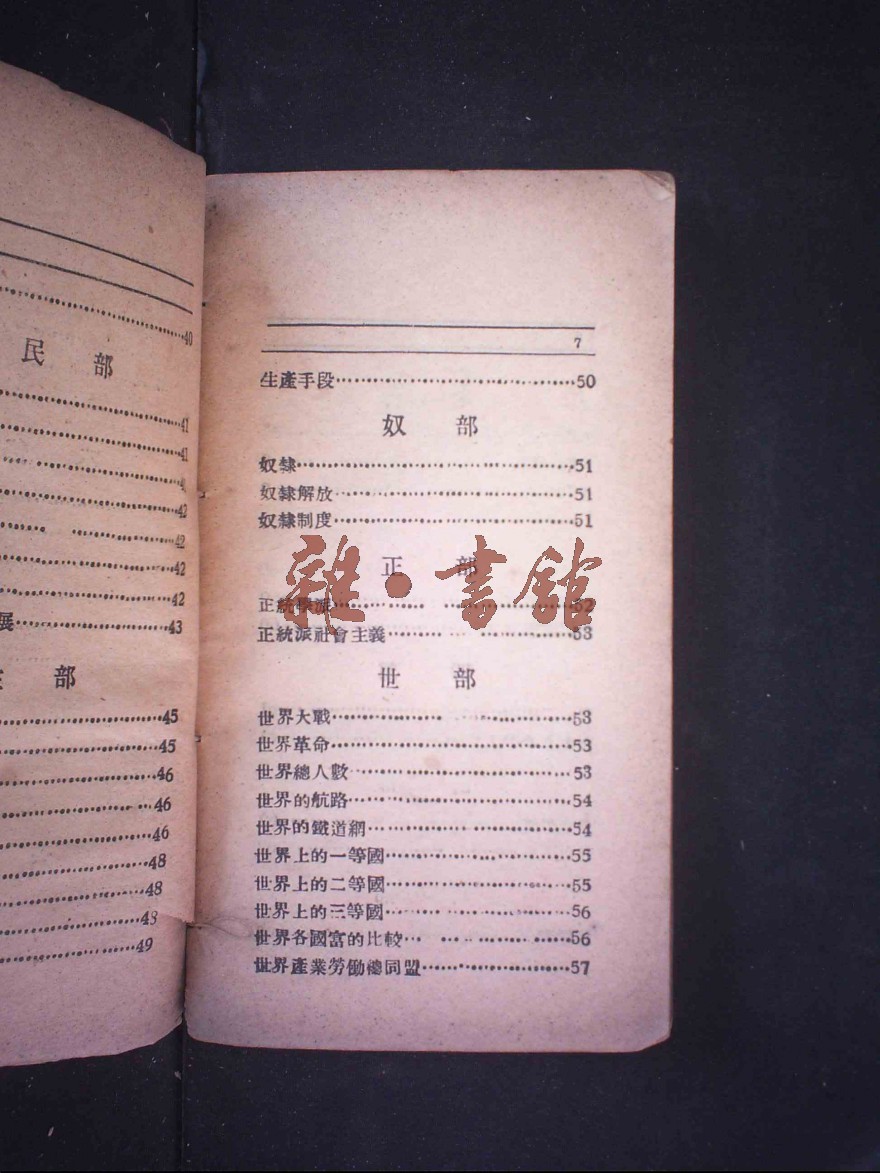 40
民 部
41
41
42
42
42
42
展 43
部
45
45
46
46
46
48
48
48
49
7
生產手段 50
奴 部
奴隸 51
奴隸解放 51
奴隸制度 51
正 部
正統學派 52
正統派社會主義 53
世 部
世界大戰 53
世界革命 53
世界總人數 53
世界的航路 54
世界的鐵道網 54
世界上的一等國 55
世界上的二等國 55
世界上的三等國 56
世界各國富的比較 56
世界產業勞働總同盟 57
雜·書館